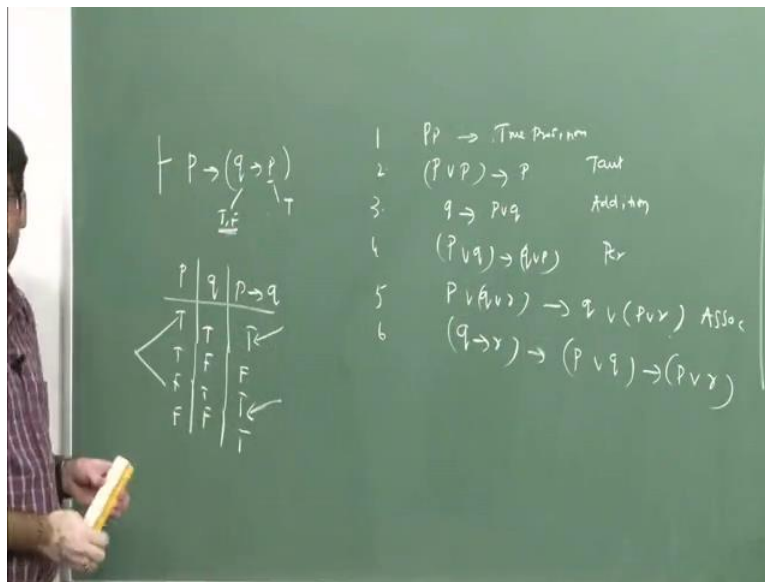 ⊢ P → (q → P)
T,F T
P q P → q
T T T
T F F
F T T
F F T
1 Pp →
2 (P ∨ P) → P Taut
3. q → P ∨ q Addition
4 (P ∨ q) → (q ∨ P) Per
5 P ∨ (q ∨ r) → q ∨ (P ∨ r) Assoc
6 (q → r) → (P ∨ q) → (P ∨ r)